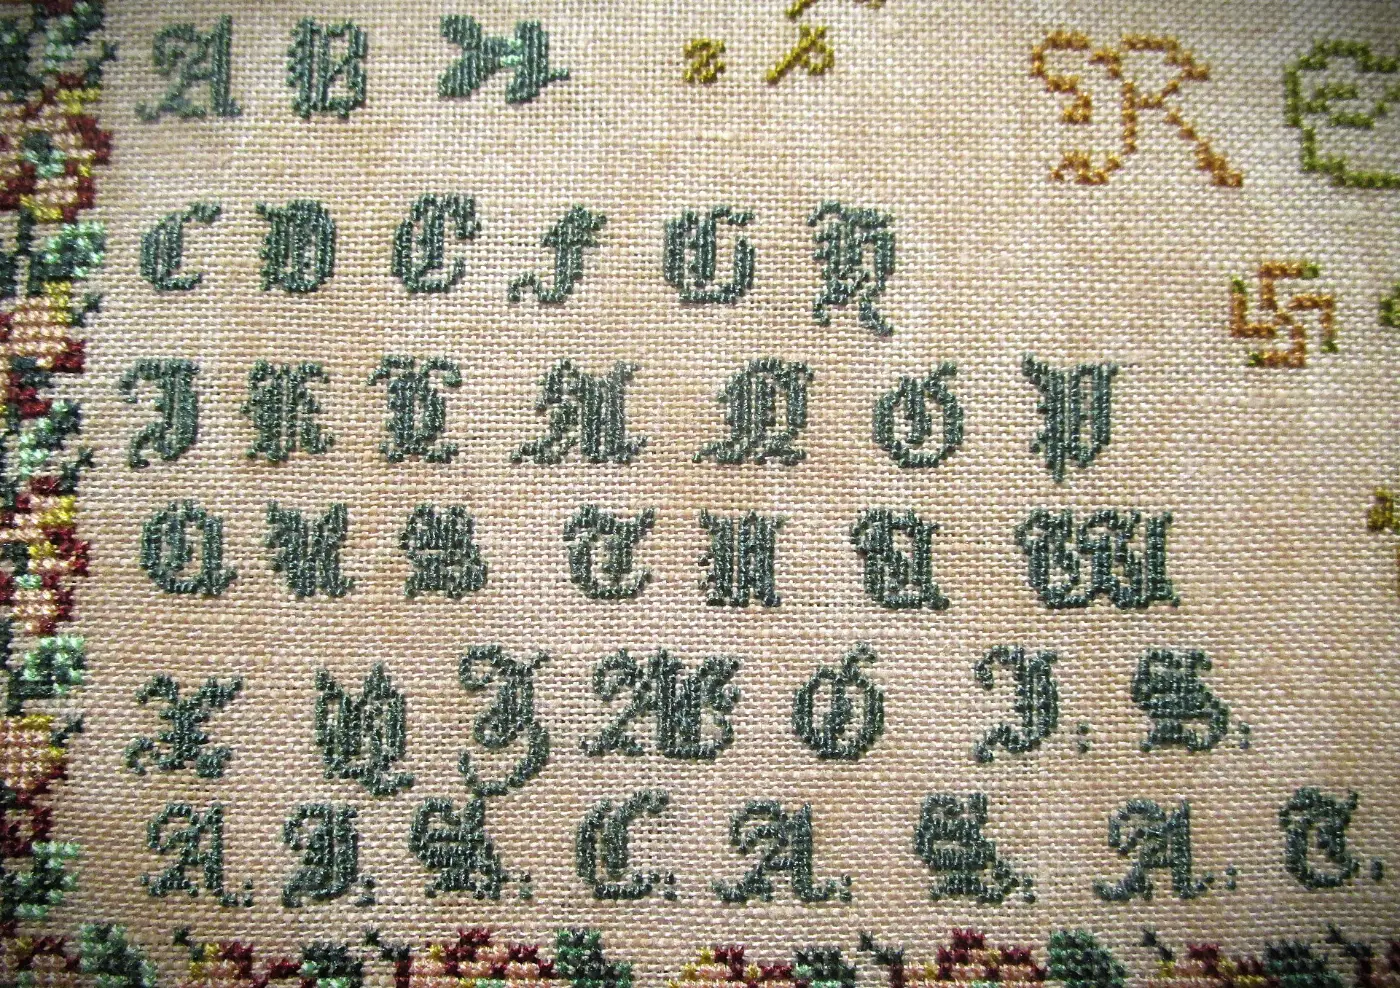 A B R E
C D E F G H
I K L M N O P
Q R S T U V W
X Y Z Æ Ø I: S:
A: S: C: A: S: A: T: